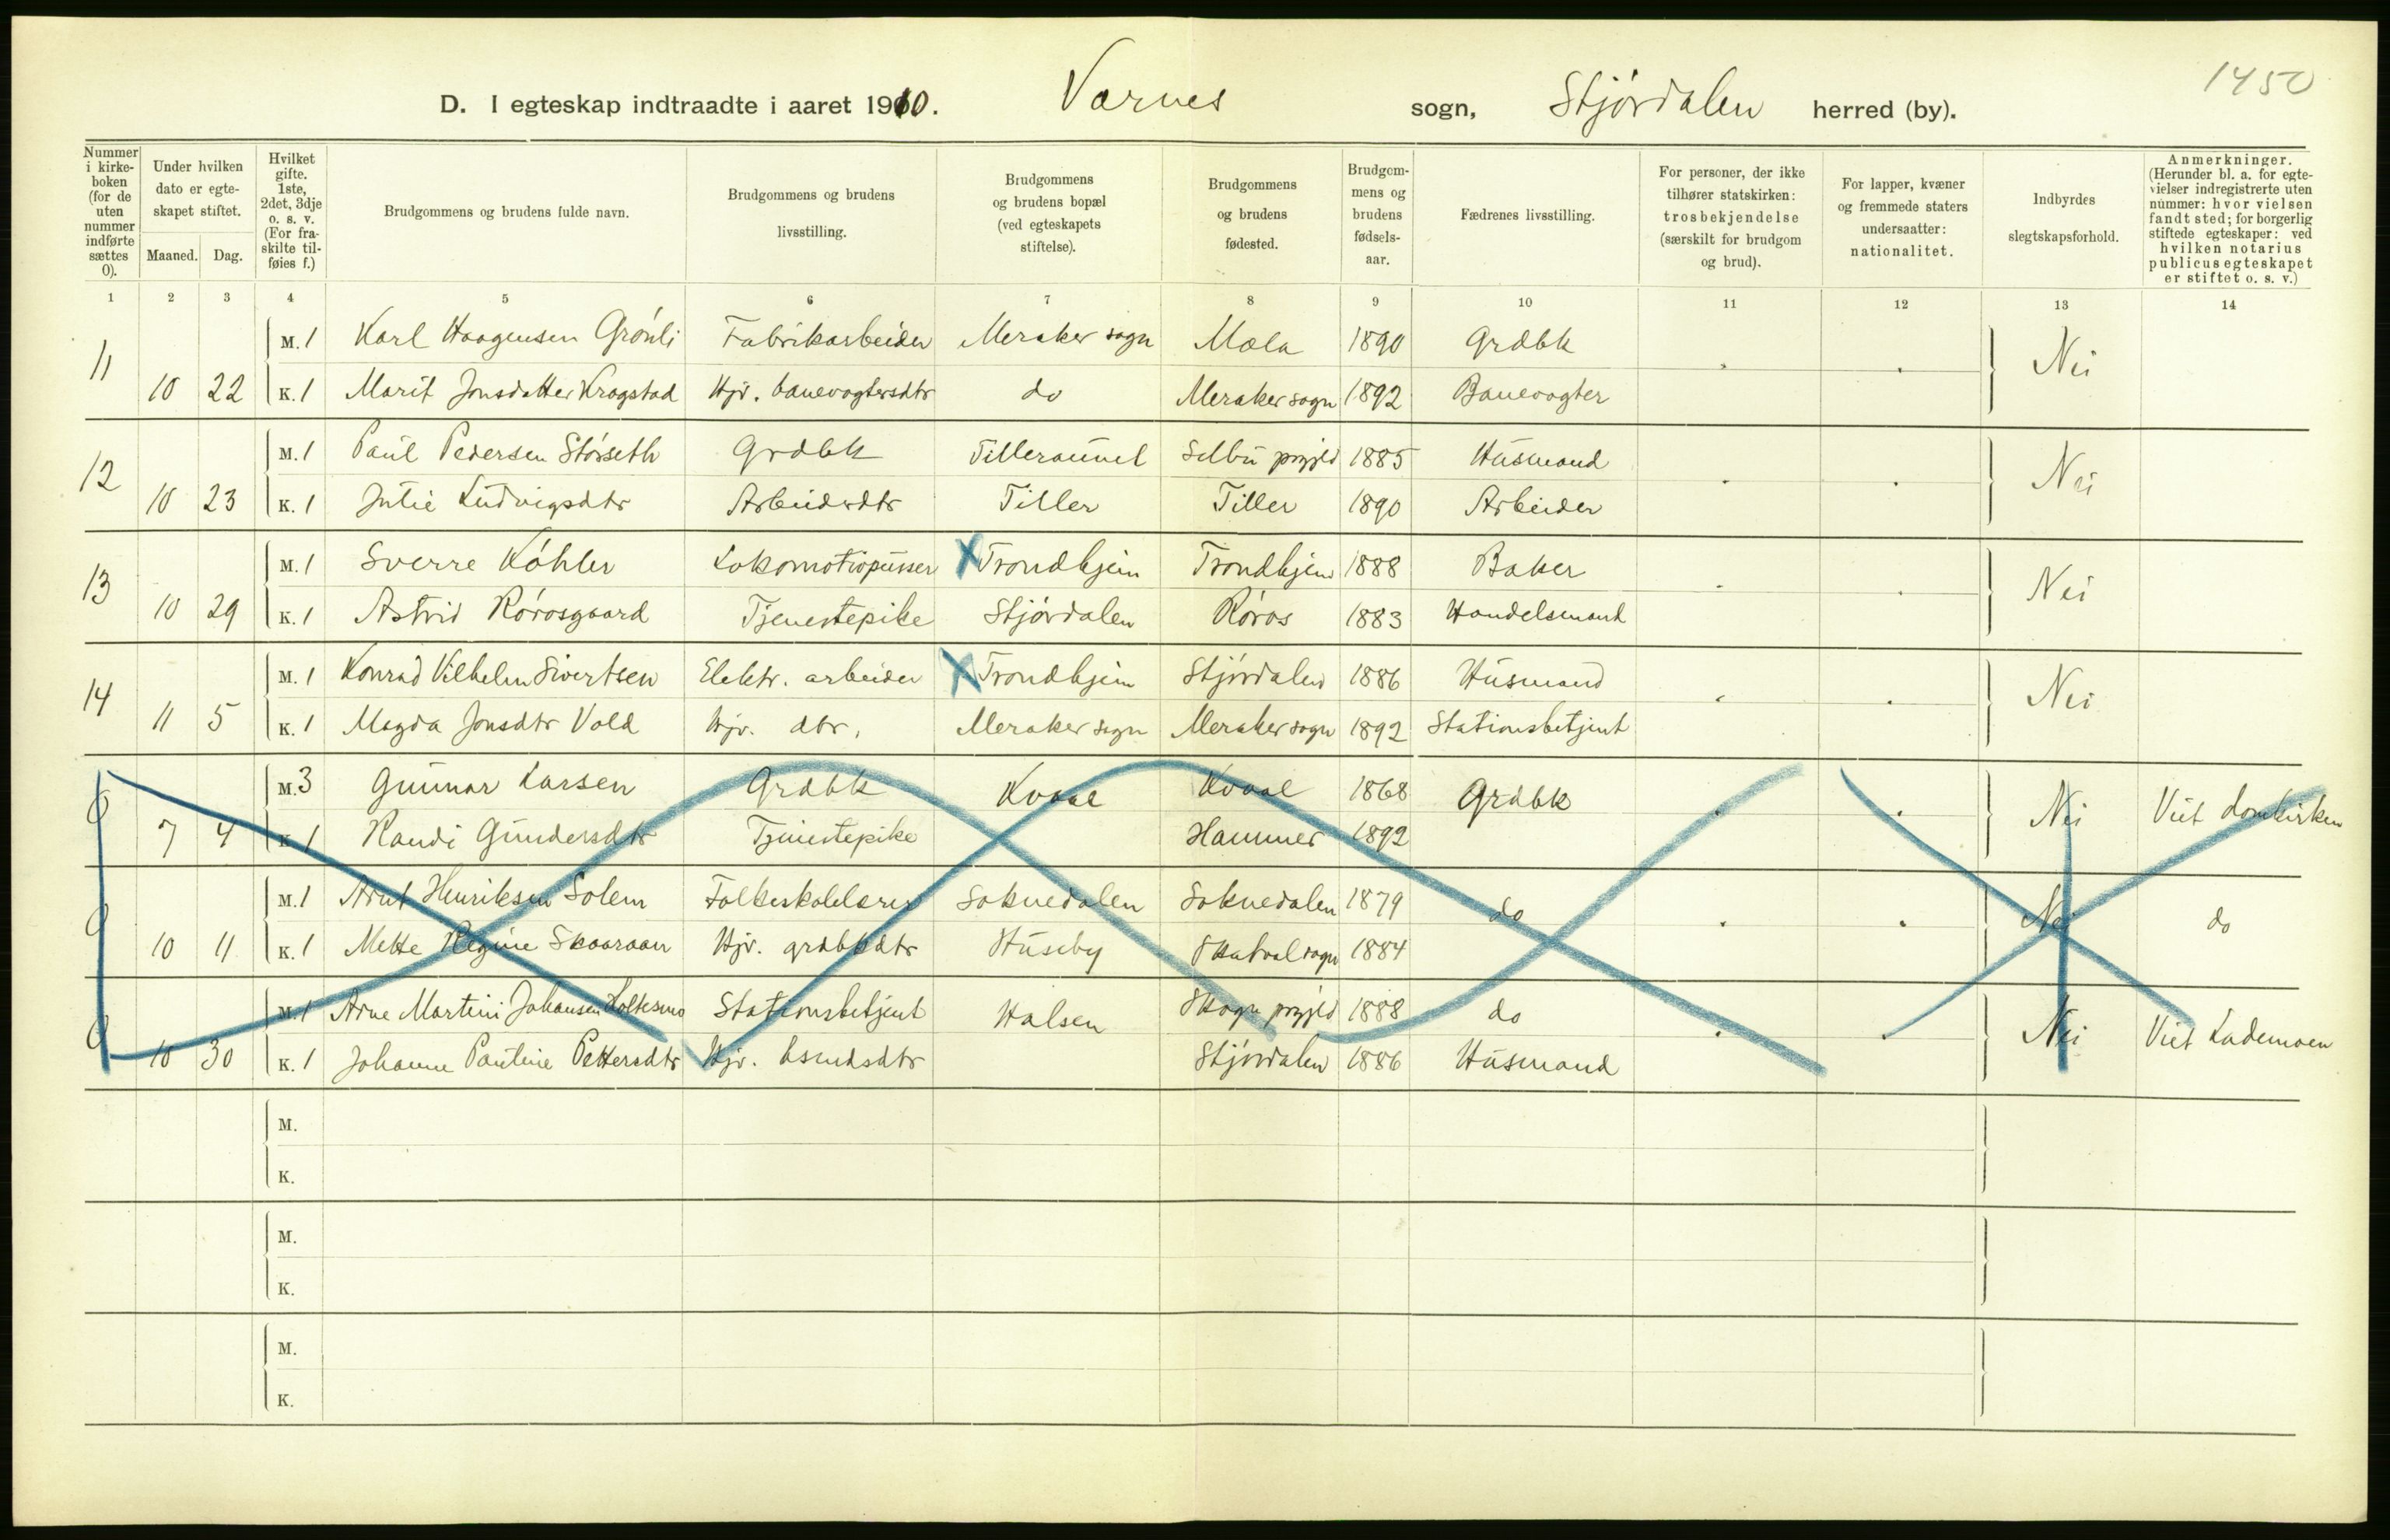 1450
D. I egteskap indtraadte i aaret 1910. Værnes sogn, Stjørdalen herred (by).
Nummer i kirke-boken (for de uten nummer indførte sættes 0).
Under hvilken dato er egte-skapet stiftet.
Maaned. Dag.
Hvilket gifte. 1ste, 2det, 3dje o. s. v. (For fra-skilte til-føies f.)
Brudgommens og brudens fulde navn.
Brudgommens og brudens livsstilling.
Brudgommens og brudens bopæl (ved egteskapets stiftelse).
Brudgommens og brudens fødested.
Brudgom-mens og brudens fødsels-aar.
Fædrenes livsstilling.
For personer, der ikke tilhører statskirken: trosbekjendelse (særskilt for brudgom og brud).
For lapper, kvæner og fremmede staters undersaatter: nationalitet.
Indbyrdes slegtskapsforhold.
Anmerkninger. (Herunder bl. a. for egte-vielser indregistrerte uten nummer: hvor vielsen fandt sted; for borgerlig stiftede egteskaper: ved hvilken notarius publicus egteskapet er stiftet o. s. v.)
1 2 3 4 5 6 7 8 9 10 11 12 13 14
11 M. 1 Karl Haagensen Grønli Fabrikarbeider Meraker sogn Mæla 1890 Grdbk Nei
10 22 K. 1 Marit Jonsdatter Kragstad Hjv. banevogtersdtr do Meraker sogn 1892 Banevogter
12 M. 1 Paul Pedersen Størseth Grdbk Tilleraunet Selbu prgjld 1885 Husmand Nei
10 23 K. 1 Julie Ludvigsdtr Arbeidrdtr Tiller Tiller 1890 Arbeider
13 M. 1 Sverre Köhler Lokomotivpusser X Trondhjem Trondhjem 1888 Baker Nei
10 29 K. 1 Astrid Rørosgaard Tjenestepike Stjørdalen Røros 1883 Handelsmand
14 M. 1 Konrad Vilhelm Sivertsen Elektr. arbeider X Trondhjem Stjørdalen 1886 Husmand Nei
11 5 K. 1 Magda Jonsdtr Vold Hjv. dtr. Meraker sogn Meraker sogn 1892 Stationsbetjent
0 M. 3 Gunnar Larsen Grdbk Kvaal Kvaal 1868 Grdbk Nei Viet Domkirken
7 4 K 1 Randi Gundersdtr Tjenestepike Hammer 1892
0 M. 1 Arnt Henriksen Solem Folkeskolelærer Soknedalen Soknedalen 1879 do Nei do
10 11 K. 1 Mette Regine Skaaraan Hjv. grdbkdtr Huseby Skatval sogn 1884
0 M. 1 Arne Martin Johansen Holtesmo Stationsbetjent Halsen Skogn prgjld 1888 do Nei Viet Lademoen
10 30 K. 1 Johanne Pauline Pettersdtr Hjv. hsmdsdtr Stjørdalen 1886 Husmand
M.
K.
M.
K.
M.
K.